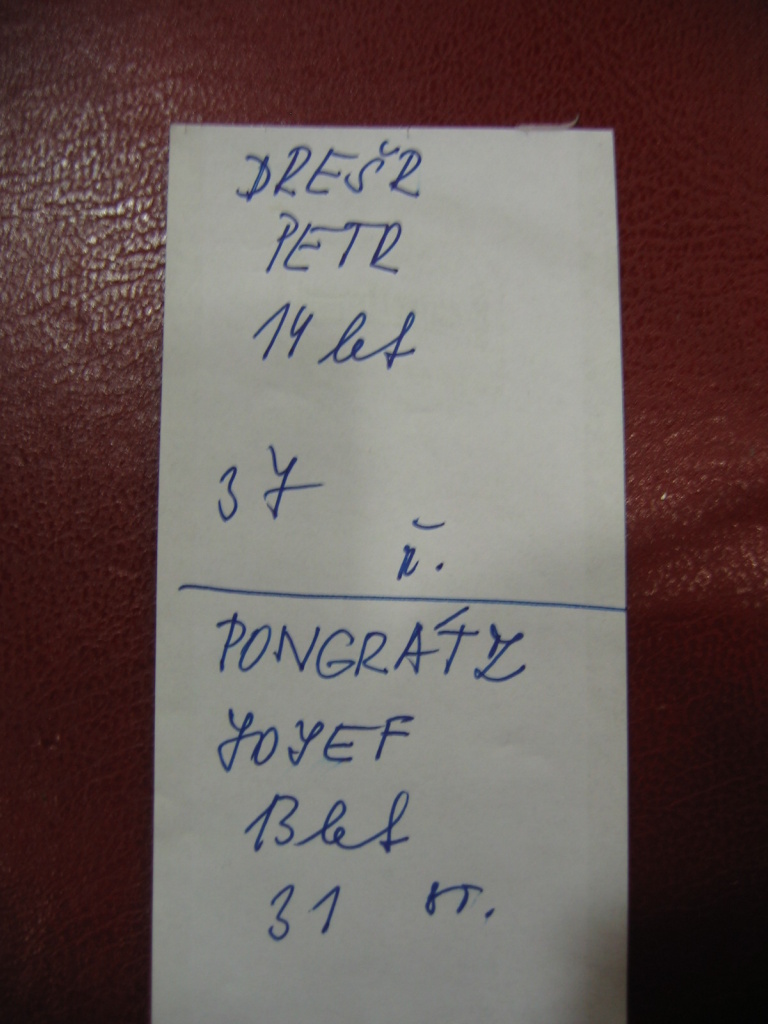 DREŠR
PETR
14 let
37
č.
PONGRÁTZ
JOSEF
13 let
31 st.